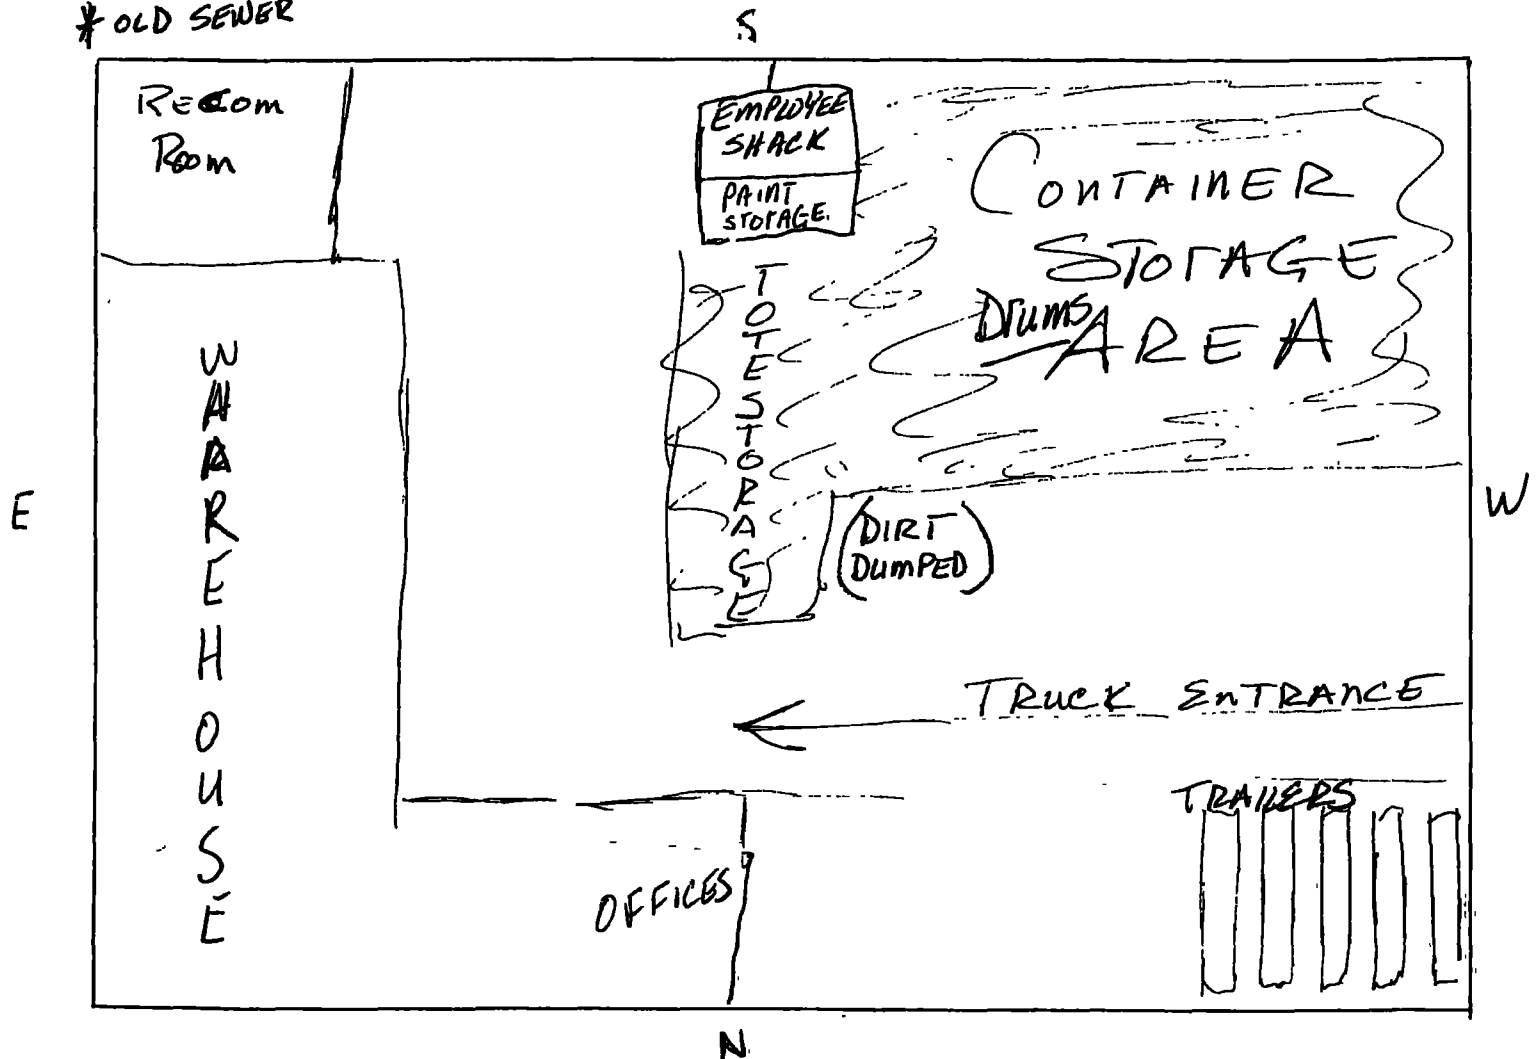 * OLD SEWER
S
RECOM
ROOM
EMPLOYEE
SHACK
PAINT
STORAGE.
CONTAINER
STORAGE
Drums
AREA
TOTE STORAGE
WAREHOUSE
E
W
(DIRT
DUMPED)
TRUCK ENTRANCE
TRAILERS
OFFICES
N